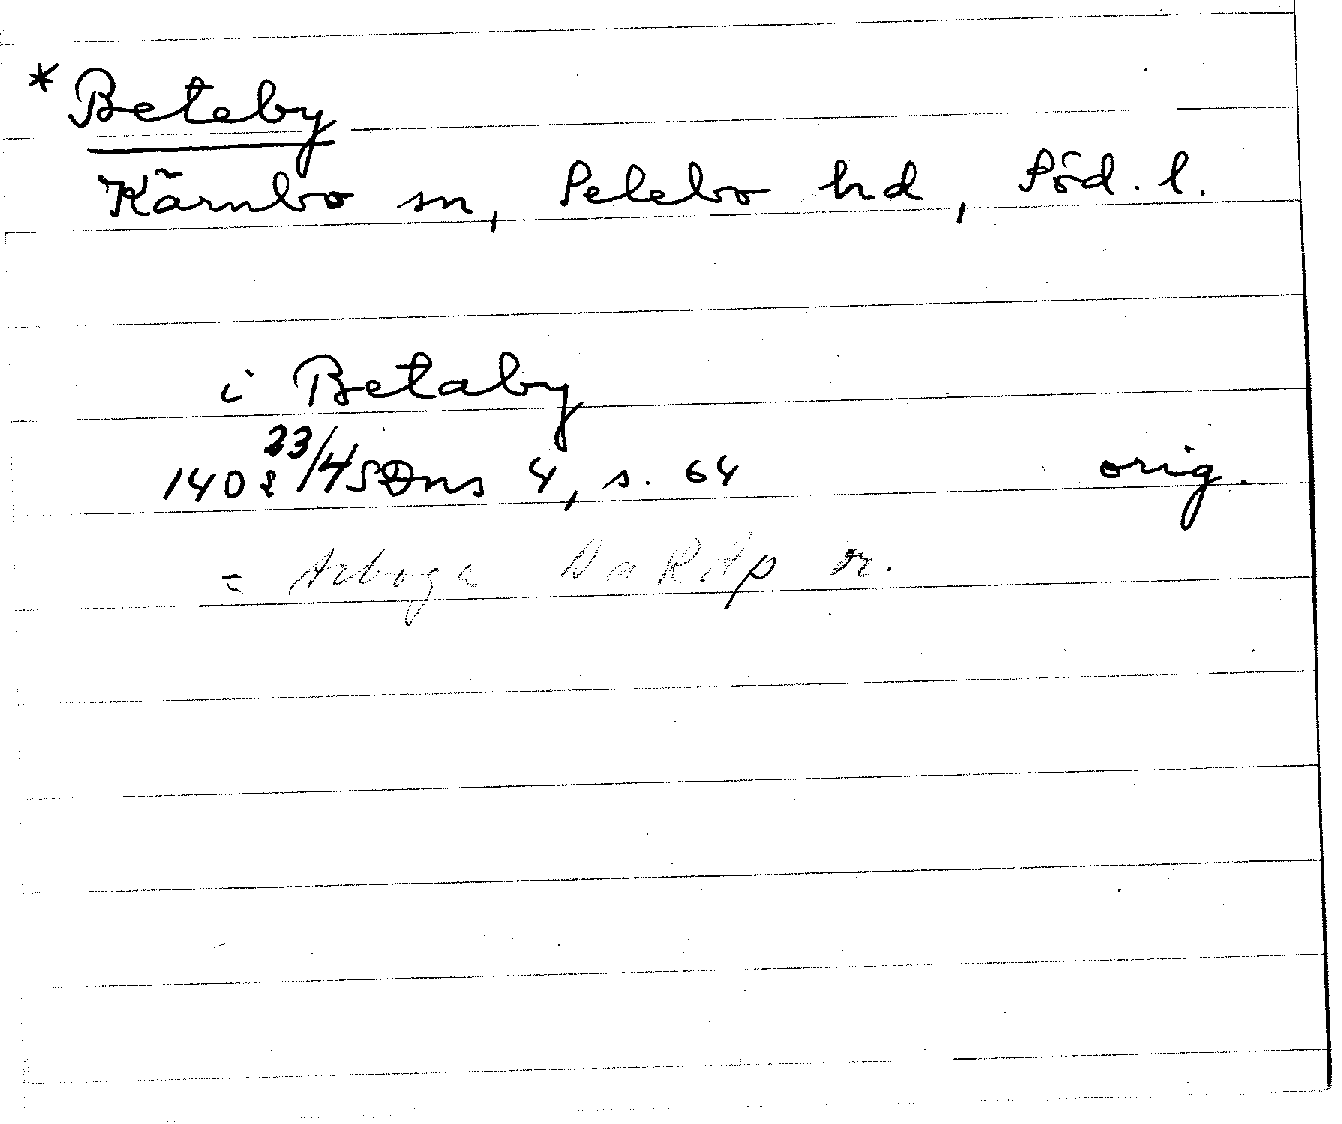 * Beteby
Kärnbo sn, Selebo hd, Söd. l.
i Betaby
1402 23/4 SDns 4, s. 64 orig.
= Arboga